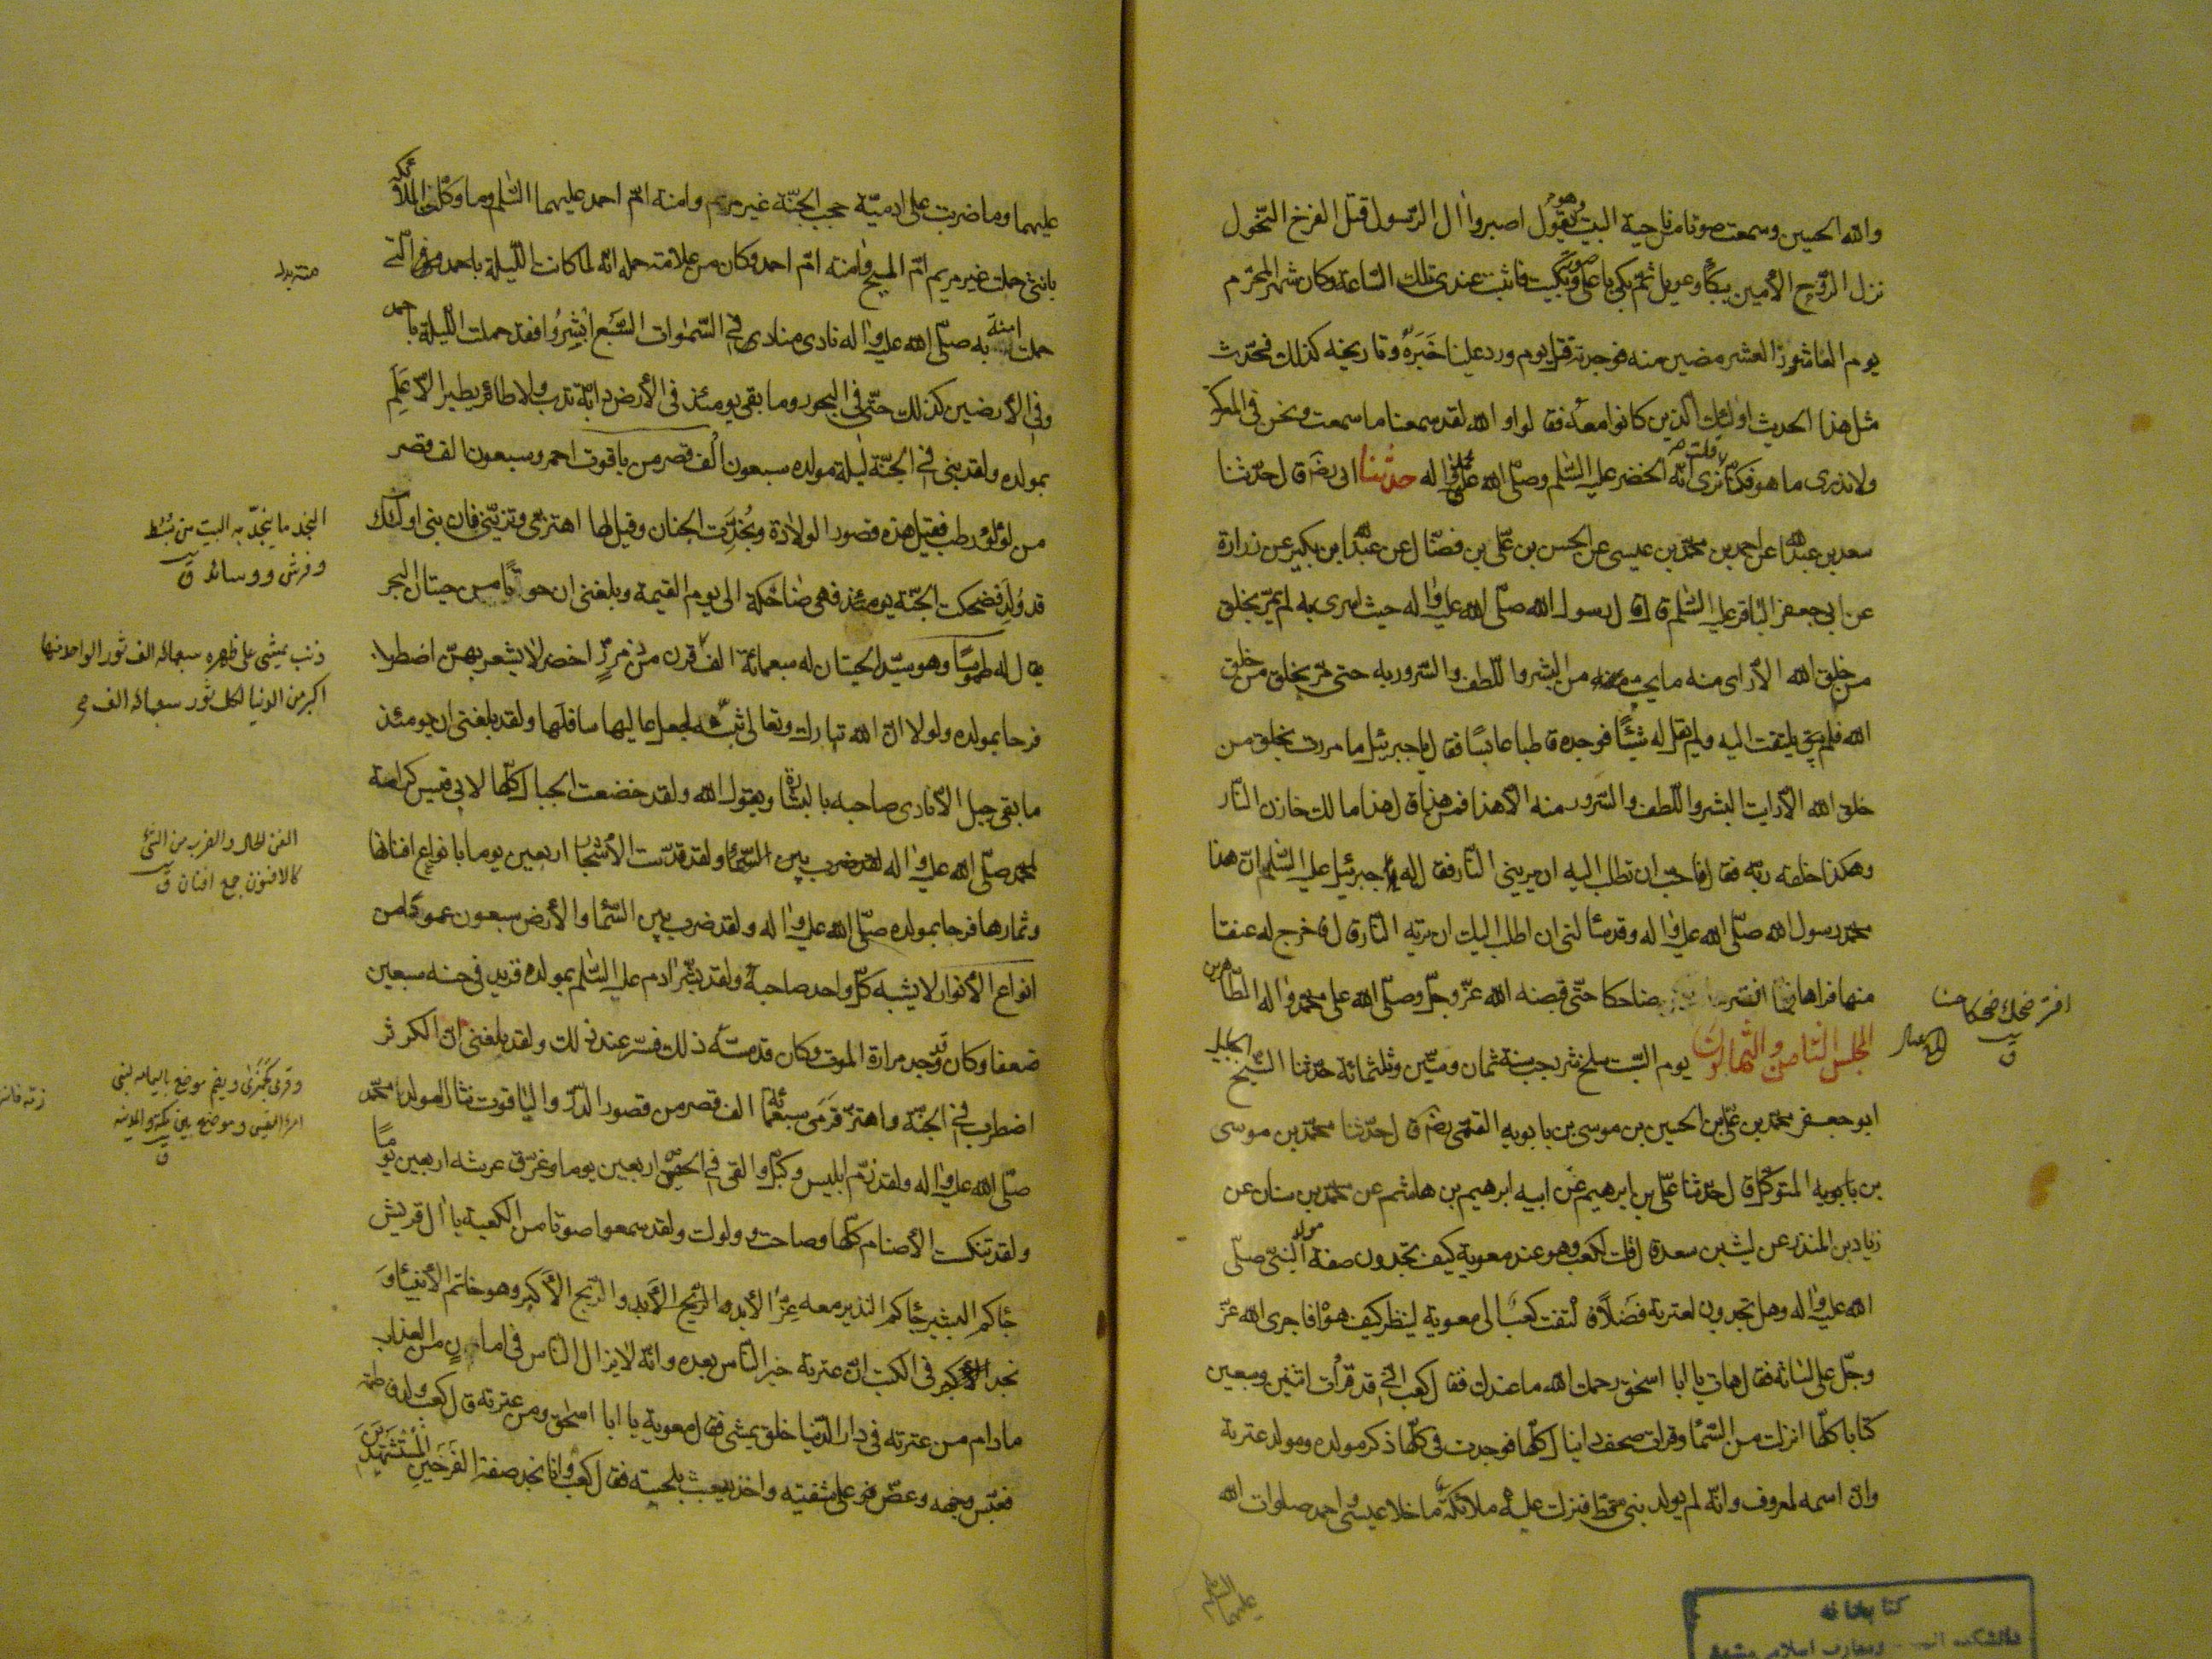 والله الحسين وسمعت صوتا من ناحية البيت وهو يقول اصبروا ال الرسول قتل الفرخ النحول
نزل الروح الأمين ببكاء وعويل ثم بكى باعلى صوته وبكيت فاثبت عندى تلك الساعة وكان شهر المحرم
يوم العاشور العشر مضين منه فوجدته قتل يوم ورد علينا خبره وتاريخه كذلك فحدثت
مثل هذا الحديث اولئك الذين كانوا معه فقالوا والله لقد سمعنا ما سمعت ونحن فى المعركة
ولا ندرى ما هو فكنا نرى انه الخضر عليه السلم وصلى الله عليه واله حدثنا ابى رضه قال حدثنا
سعد بن عبد الله عن احمد بن محمد بن عيسى عن الحسن بن على بن فضال عن عبد الله بن بكير عن زرارة
عن ابى جعفر الباقر عليه السلم قال ان رسول الله صلى الله عليه واله حيث اسرى به لم يمر بخلق
من خلق الله الا راى منه ما يحب من البشر واللطف والسرور به حتى مر بخلق من خلق
الله فلم يلتفت اليه ولم يقل له شيئا فوجده قاطبا عابسا فقال يا جبرئيل ما مررت بخلق من
خلق الله الا رايت البشر واللطف والسرور منه الا هذا فمن هذا قال هذا مالك خازن النار
وهكذا خلقه ربه فقال فاحب ان تطلب اليه ان يرينى النار فقال له جبرئيل عليه السلم ان هذا
محمد رسول الله صلى الله عليه واله وقد سألنى ان اطلب اليك ان تريه النار قال فاخرج له عنقا
منها فراها فما افتر ضاحكا حتى قبضه الله عز وجل وصلى الله على محمد واله الطاهرين
المجلس الثامن والثمانون يوم السبت سلخ شهر رجب سنة ثمان وستين وثلثمائة حدثنا الشيخ الجليل
ابو جعفر محمد بن على بن الحسين بن موسى بن بابويه القمى رضه قال حدثنا محمد بن موسى
بن بابويه المتوكل قال حدثنا على بن ابرهيم عن ابيه ابرهيم بن هاشم عن محمد بن سنان عن
زياد بن المنذر عن ليث بن سعد قال قلت لكعب وهو عند معوية كيف تجدون صفة مولد النبى صلى
الله عليه واله وهل تجدون لعترته فضلا فالتفت كعب الى معوية لينظر كيف هواه فاجرى الله عز
وجل على لسانه فقال هات يا ابا اسحق رحمك الله ما عندك فقال كعب انى قد قرأت اثنين وسبعين
كتابا كلها انزلت من السماء وقرات صحف دانيال كلها فوجدت فى كلها ذكر مولده ومولد عترته
وان اسمه لمعروف وانه لم يولد نبى قط فنزلت عليه ملائكة ما خلا عيسى واحمد صلوات الله
عليهما
افتر ضحك ضحكا حسنا
ق
عليهما وما ضربت على ادمية حجب الجنة غير مريم وامنة ام احمد عليهما السلم وما وكلت الملائكة
بانثى حملت غير مريم ام المسيح وامنة ام احمد وكان من علامة حمله انه لما كانت الليلة التى
حملت امنة به صلى الله عليه واله نادى مناد فى السموات السبع ابشروا فقد حملت الليلة باحمد
وفى الأرضين كذلك حتى فى البحور وما بقى يومئذ فى الأرض دابة تدب ولا طائر يطير الا علم
بمولده ولقد بنى فى الجنة ليلة مولده سبعون ألف قصر من ياقوت احمر وسبعون الف قصر
من لؤلؤ رطب فقيل هذه قصور الولادة ونجدت الجنان وقيل لها اهتزى وتزينى فان نبى اوليائك
قد ولد فضحكت الجنة يومئذ فهى ضاحكة الى يوم القيمة وبلغنى ان حوتا من حيتان البحر
يقال له طموسا وهو سيد الحيتان له سبعمائة الف ذنب
اضطرب
فرحا بمولده ولولا ان الله تبارك وتعالى ثبته لجعل عاليها سافلها ولقد بلغنى ان يومئذ
ما بقى جبل الا نادى صاحبه بالبشارة ويقول لا اله الا الله ولقد خضعت الجبال كلها لابى قبيس كرامة
لمحمد صلى الله عليه واله ولقد قدست الأشجار اربعين يوما بانواع افنانها
وثمارها فرحا بمولده صلى الله عليه واله ولقد ضرب بين السماء والأرض سبعون عمودا من
انواع الأنوار لا يشبه كل واحد صاحبه ولقد بشر ادم عليه السلم بمولده فزيد فى حسنه سبعين
ضعفا وكان قد وجد مرارة الموت وكان قد مسه ذلك فسر عنه ذلك ولقد بلغنى ان الكوثر
اضطرب فى الجنة واهتز فرمى سبعمائة الف قصر من قصور الدر والياقوت نثارا لمولد محمد
صلى الله عليه واله ولقد زم ابليس وكبل والقى فى الحصن اربعين يوما وغرق عرشه اربعين يوما
ولقد تنكست الأصنام كلها وصاحت وولولت ولقد سمعوا صوتا من الكعبة يا ال قريش
جاءكم البشير جاءكم النذير معه عز الأبد والربح الأكبر وهو خاتم الأنبياء و
نجد فى الكتب ان عترته خير الناس بعده وانه لا يزال الناس فى امان من العذاب
ما دام من عترته فى دار الدنيا خلق يمشى فقال معوية يا ابا اسحق ومن عترته قال كعب ولد فاطمة
فعبس وجهه وعض على شفتيه واخذ يعبث بلحيته فقال كعب وانا نجد صفة الفرخين المستشهدين
النجد ما ينجد به البيت من بسط
وفرش ووسائد ق
ذنب يمشى على ظهره سبعمائة الف ثور الواحد منها
اكبر من الدنيا لكل ثور سبعمائة الف
الفن الحال والضرب من الشئ
كالافنون جمع افنان ق
وقرمى كجمزى ويضم موضع باليمامة لبنى
امرئ القيس وموضع بين مكة والمدينة
ق
كتابخانه